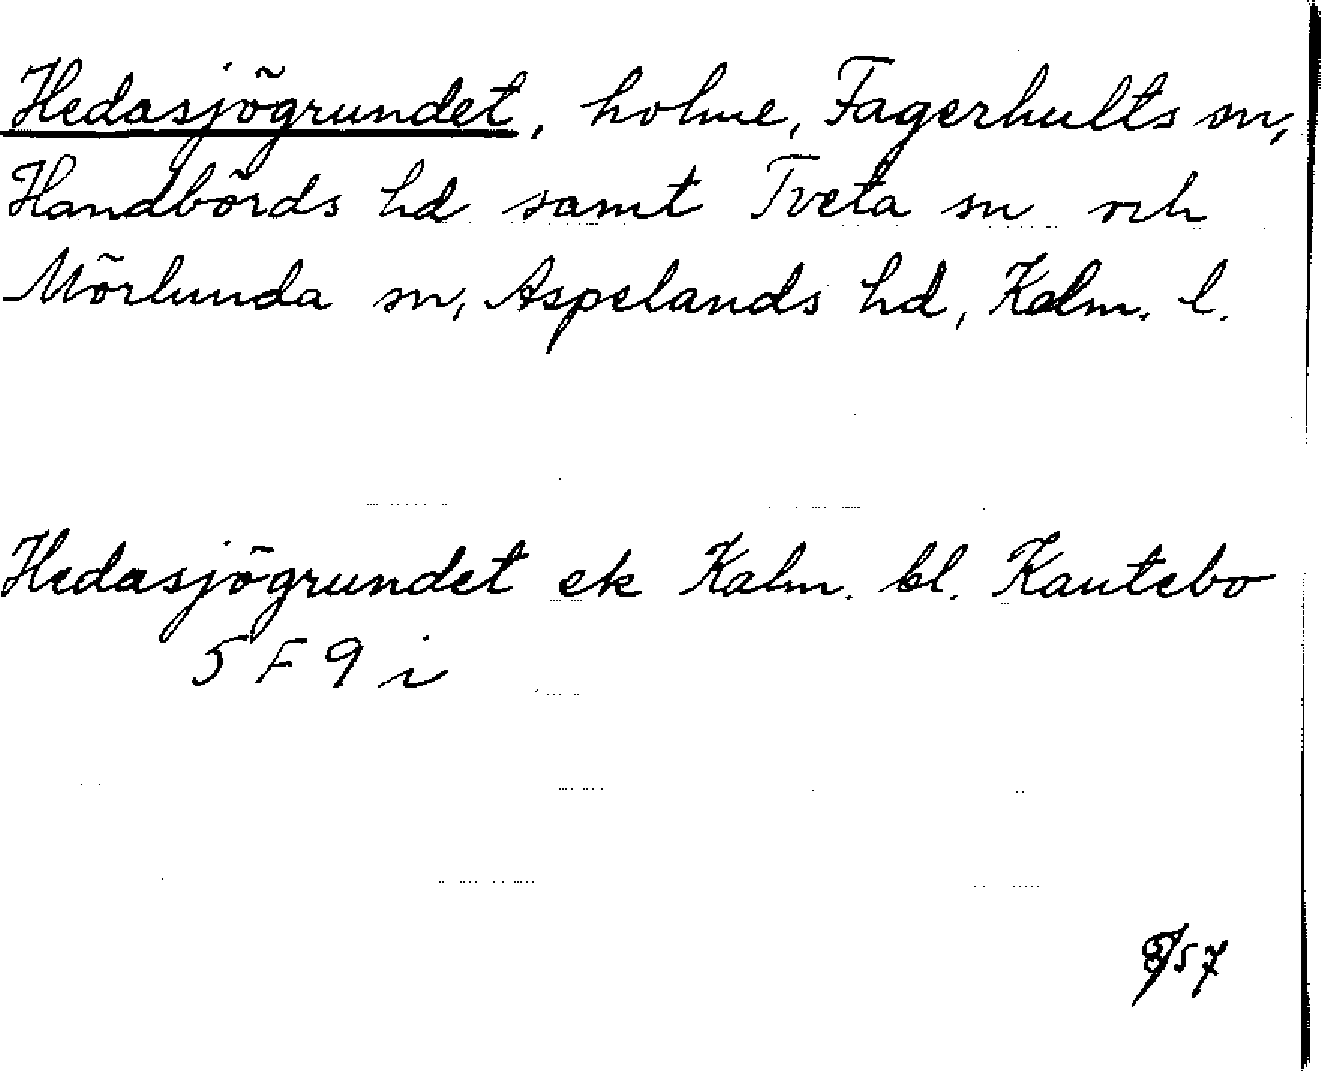 Hedasjögrundet, holme, Fagerhults sn,
Handbörds hd samt Tveta sn och
Mörlunda sn, Aspelands hd, Kalm. l.
Hedasjögrundet ek Kalm. bl. Kautebo
5 F 9 i
8/57